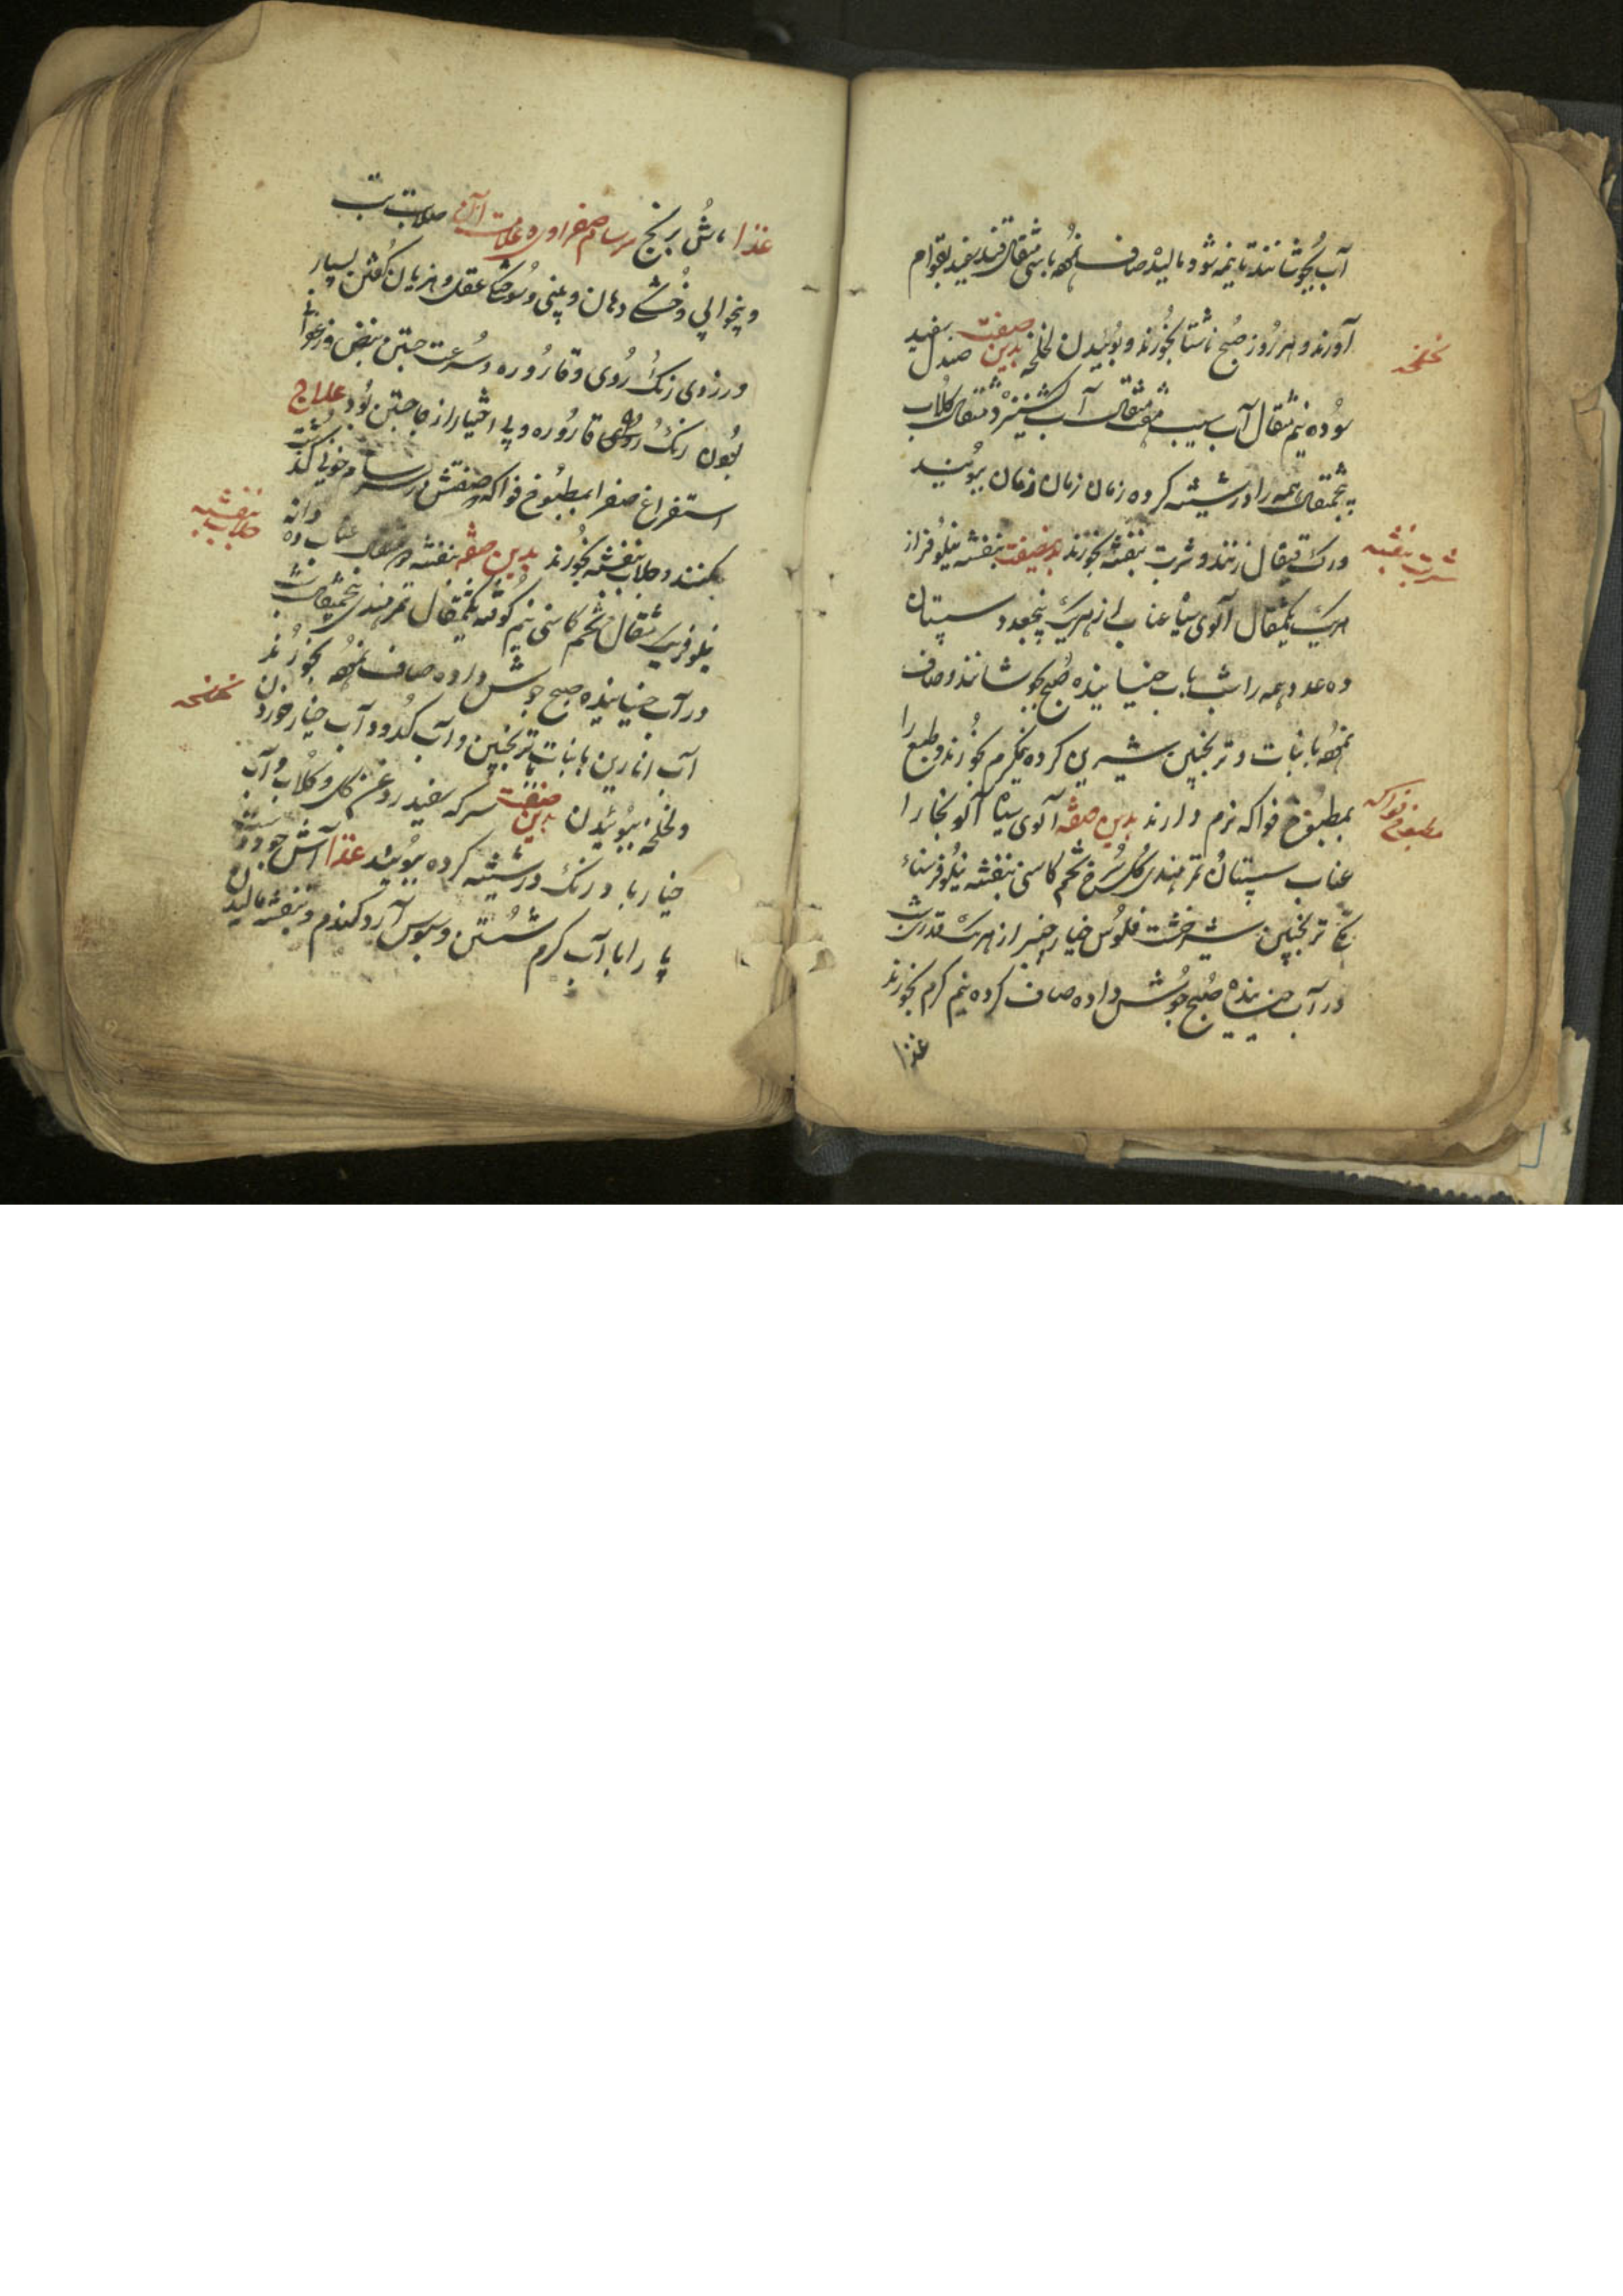 آب بجوشانند تا نیمه شود و مالیده صاف نموده با سی مثقال قند سفید بقوام
آورند و هر روز صبح ناشتا بخورند و بوئیدن لخلخه بدین صفت صندل سفید
لخلخه
سوده نیم مثقال آب سیب هفت مثقال آب کشنیز دو مثقال گلاب
پنجمثقال همه را در شیشه کرده زمان زمان زمان ببویند
ورک قیفال زنند و شربت بنفشه بخورند بدینصفت بنفشه نیلوفر از
شربت بنفشه
هریک یکمثقال آلوی سیاه عناب از هریک پنجعدد سپستان
ده عدد همه را شب بآب خیسانیده صبح بجوشانند و صاف
نموده با نبات و ترنجبین شیرین کرده نیمگرم بخورند و طبع را
بمطبوخ فواکه نرم دارند بدین صفه آلوی سیاه آلو بخارا
مطبوخ فواکه
عناب سپستان تمر هندی گل سرخ تخم کاسنی بنفشه نیلوفر سناء
ترنجبین شیرخشت فلوس خیار چنبر از هریک قدری شب
در آب خیسانیده صبح جوش داده صاف کرده نیم گرم بخورند
غذا
غذا ماش برنج سرسام صفراوی علامت آن صلابت تب
و بیخوابی و خشکی دهان و بینی و عقل و هذیان گفتن بسیار
و زردی رنگ روی و قاروره و سرعت جستن نبض و زعفرانی
بودن رنگ قاروره و بی اختیار از جا جستن بود علاج
استفراغ صفرا بمطبوخ فواکه که صفتش در سرسام خونی گذشت
بکنند و جلاب بنفشه بخورند بدین صفه بنفشه دو مثقال عناب ده دانه
جلاب بنفشه
نیلوفر یک مثقال تخم کاسنی نیم کوفته یکمثقال تمر هندی پنجمثقال شب
در آب خیسانیده صبح جوش داده صاف نموده بخورند
آب انارین با نبات یا ترنجبین و آب کدو و آب خیار خوردن
لخلخه
و لخلخه ببوئیدن بدین صفت سرکه سفید روغن گل و گلاب و آب
خیار بادرنگ در شیشه کرده ببویند غذا آش جو
پا را با آب گرم شستن و سبوس آرد گندم و بنفشه مالیدن